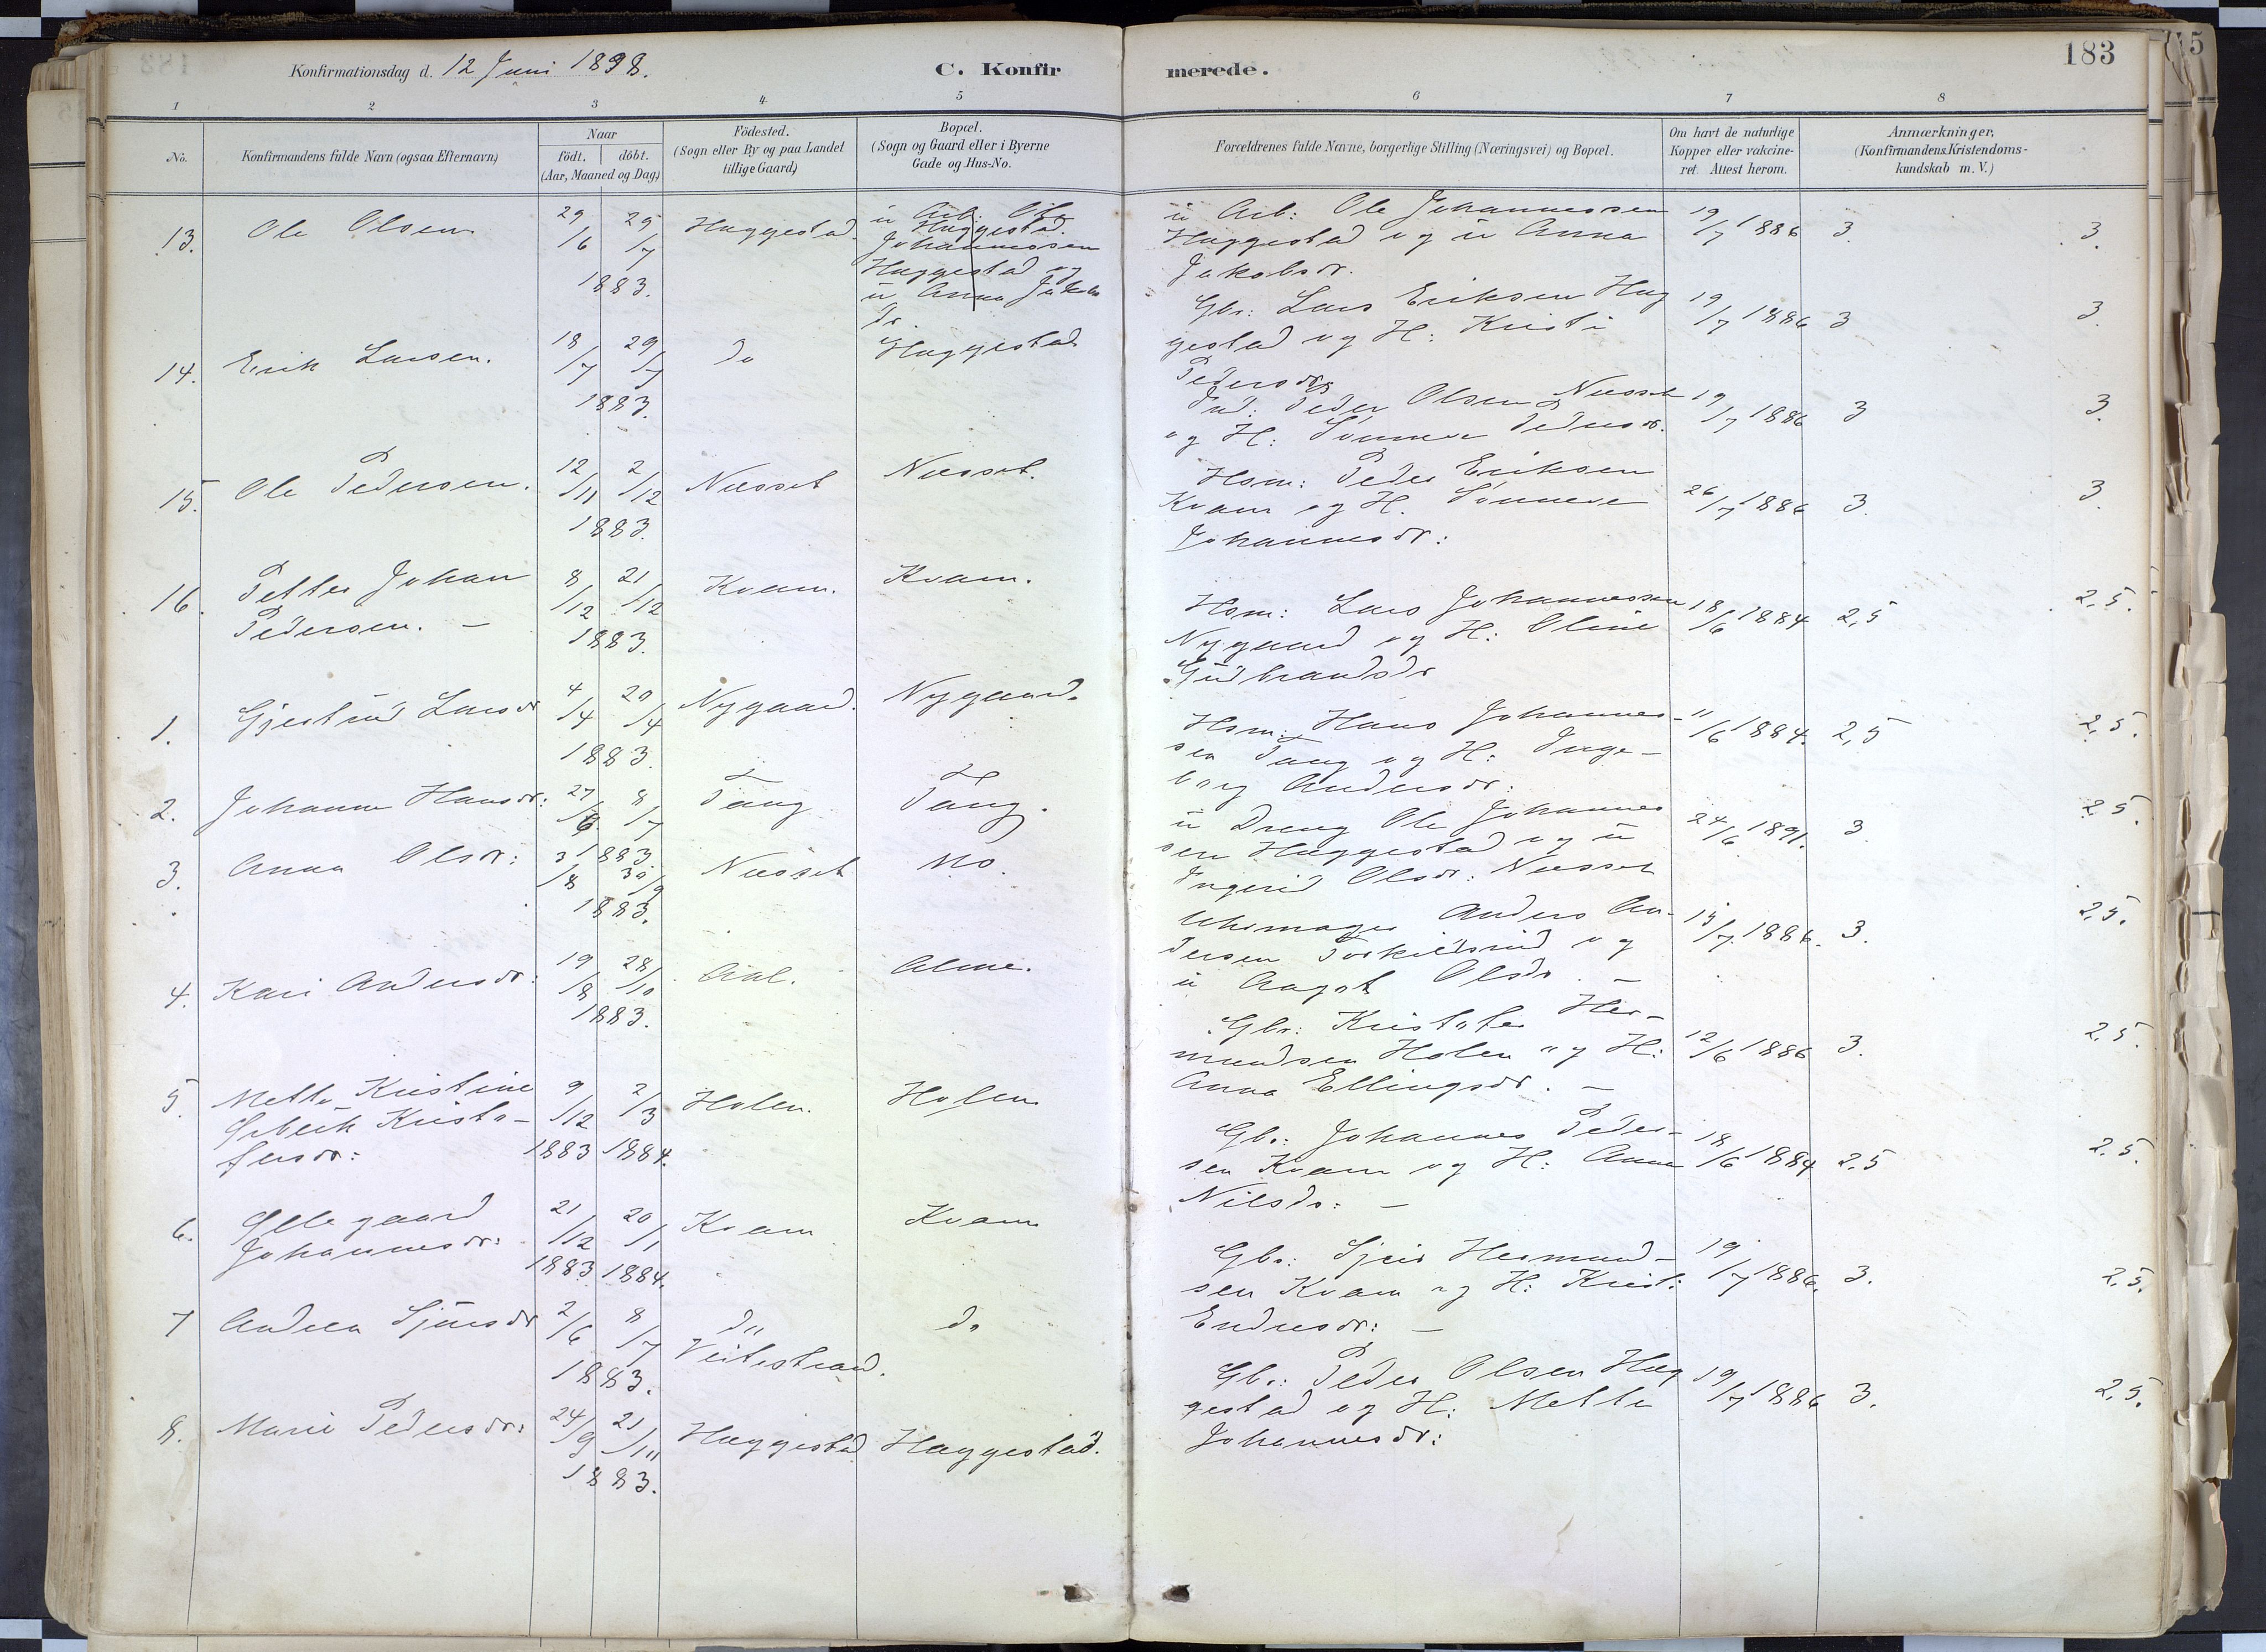 183
Konfirmationsdag d. 12 Juni 1898.
C. Konfirmerede.
1 2 3 4 5 6 7 8
No.
Konfirmandens fulde Navn (ogsaa Efternavn)
Naar
födt. döbt.
(Aar, Maaned og Dag.)
Födested.
(Sogn eller By og paa Landet
tillige Gaard)
Bopæl.
(Sogn og Gaard eller i Byerne
Gade og Hus-No.
Forældrenes fulde Navne, borgerlige Stilling (Næringsvei) og Bopæl.
Om havt de naturlige
Kopper eller vakcine-
ret. Attest herom.
Anmærkninger,
(Konfirmandens Kristendoms-
kundskab m. V.)
13. Ole Olsen 29/6 25/7 1883. Haggestad.
u Arb: Ole
Haggestad.
Johannessen
Haggestad og
u Anna Jakobs
dr.
u Arb: Ole Johannessen
Haggestad og u Anna
Jakobsdr.
19/7 1886 3. 3.
14. Erik Larsen. 18/7 29/7 1883. do Haggestad
Gbr: Lars Eriksen Hag
gestad og H: Kristi
Pedersdr
19/7 1886 3 3.
15. Ole Pedersen. 12/11 2/12 1883. Næsset Næsset.
Ind: Peder Olsen Næsset
og H: Synneve Pedersdr.
19/7 1886 3 3.
16. Petter Johan
Pedersen. — 8/12 21/12 1883. Kvam. Kvam.
Hsm: Peder Eriksen
Kvam og H. Synneve
Johannesdr:
26/7 1886 3. 3.
1. Gjertrud Larsdr 4/4 20/4 1883. Nygaard. Nygaard.
Hsm: Lars Johannessen
Nygaard og H: Oline
Gudbrandsdr
18/6 1884 2,5 2,5.
2. Johanne Hansdr: 27/6 8/7 1883. Tang Tang.
Hsm: Hans Johannes-
sen Tang og H: Inge-
borg Andersdr:
11/6 1884. 2,5 2,5.
3. Anna Olsdr: 31/8 30/9 1883. Næsset Mo.
u Dreng Ole Johannes
sen Haggestad og u
Ingerid Olsdr: Næsset
24/6 1891. 3. 2,5.
4. Kari Andersdr: 19/8 28/10 1883. Aal. Alme.
Uhrmager Anders An-
dersen Torkildsrud og
u Aagot Olsdr. —
15/7 1886. 3. 2,5.
5. Mette Kristine
Kristo-
fersdr: 9/12 1883 2/3 1884. Holen. Holen
Gbr: Kristofer Her-
mundsen Holen og H:
Anna Ellingsdr. —
12/6 1886 3. 2,5.
6. Ollegaard
Johannesdr: 21/12 1883 20/1 1884. Kvam Kvam
Gbr: Johannes Peder-
sen Kvam og H: Anna
Nilsdr: —
18/6 1884 2,5 2,5.
7 Andrea Sjursdr 2/6 8/7 1883. do
Veitestrand. do
Gbr: Sjur Hermund-
sen Kvam og H: Kristi
Endresdr: —
19/7 1886. 3. 2,5.
8. Marie Pedersdr: 24/9 21/11 1883. Haggestad Haggestad.
Gbr: Peder Olsen Hag
gestad og H: Mette
Johannesdr:
19/7 1886 3. 2,5.